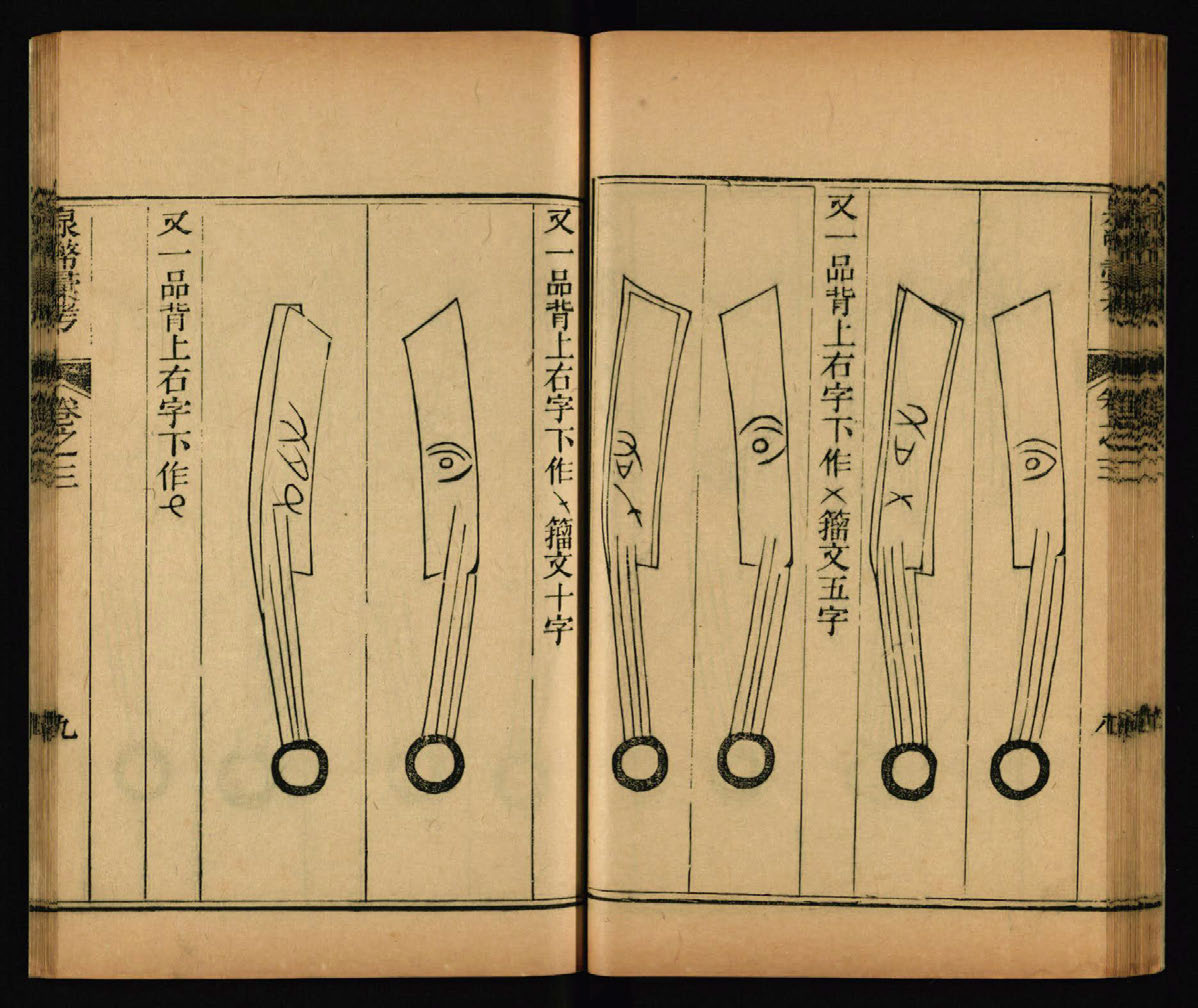 又一品背上右字下作㐅籀文五字
又一品背上右字下作〤籀文十字
又一品背上右字下作
泉幣彙考
卷之三
九
卷之三
八